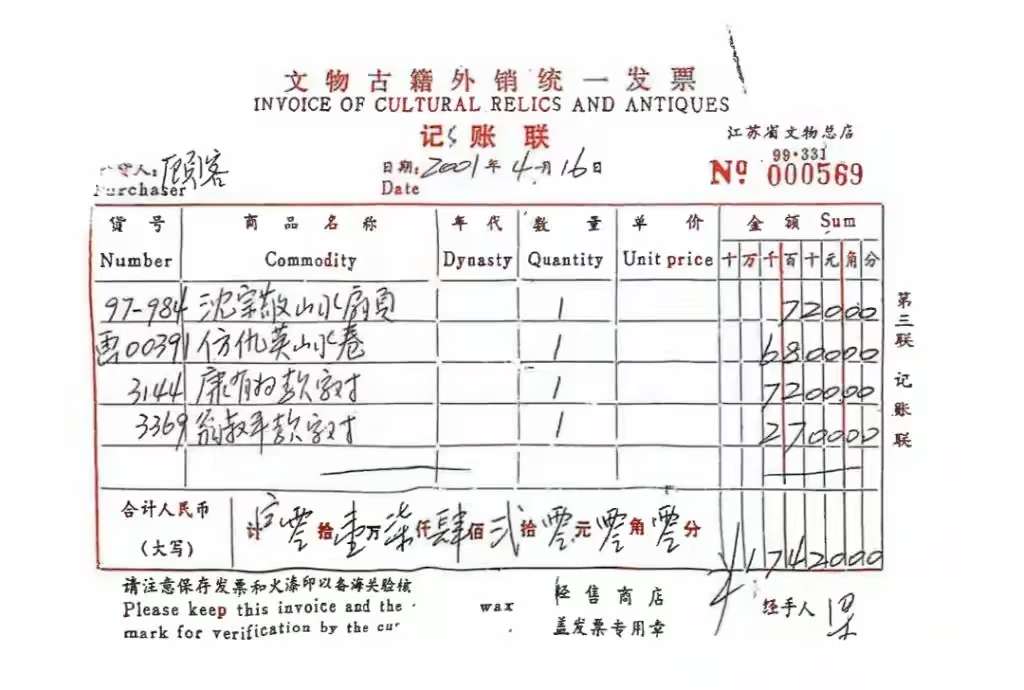 文物古籍外销统一发票
INVOICE OF CULTURAL RELICS AND ANTIQUES
记账联
江苏省文物总店
99·331
№ 000569
人: 顾客
Purchaser
日期: 2001年 4月 16日
Date
货号 商品名称 年代 数量 单价 金额 Sum
Number Commodity Dynasty Quantity Unit price 十 万 千 百 十 元 角 分
97-984 沈宗敬山水扇页 1 72000
画00391 仿仇英山水卷 1 680000
3144 康有为款字对 1 720000
3369 翁叔平款字对 1 270000
合计人民币
(大写)
计 零拾壹万柒仟肆佰贰拾零元零角零分 ¥1742000
第三联 记账联
请注意保存发票和火漆印以备海关验核
Please keep this invoice and the wax
mark for verification by the cu
经售商店
盖发票专用章
经手人